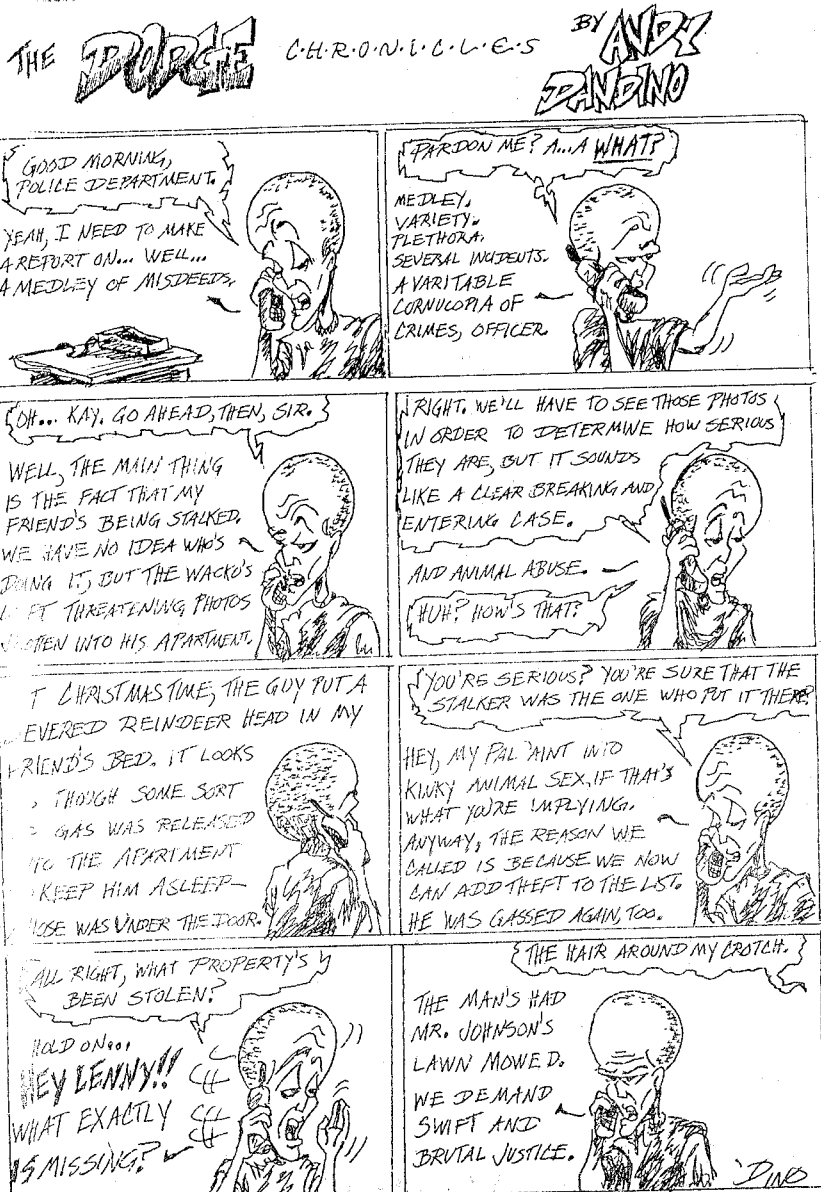 THE DODGE C·H·R·O·N·I·C·L·E·S
BY ANDY
DANDINO
GOOD MORNING,
POLICE DEPARTMENT.
YEAH, I NEED TO MAKE
A REPORT ON... WELL...
A MEDLEY OF MISDEEDS.
PARDON ME? A...A WHAT?
MEDLEY.
VARIETY.
PLETHORA.
SEVERAL INCIDENTS.
A VARITABLE
CORNUCOPIA OF
CRIMES, OFFICER.
OH... KAY. GO AHEAD, THEN, SIR.
WELL, THE MAIN THING
IS THE FACT THAT MY
FRIEND'S BEING STALKED.
WE HAVE NO IDEA WHO'S
DOING IT, BUT THE WACKO'S
THREATENING PHOTOS
INTO HIS APARTMENT.
RIGHT. WE'LL HAVE TO SEE THOSE PHOTOS
IN ORDER TO DETERMINE HOW SERIOUS
THEY ARE, BUT IT SOUNDS
LIKE A CLEAR BREAKING AND
ENTERING CASE.
AND ANIMAL ABUSE.
HUH? HOW'S THAT?
T CHRISTMASTIME, THE GUY PUT A
EVERED REINDEER HEAD IN MY
FRIEND'S BED. IT LOOKS
THOUGH SOME SORT
GAS WAS RELEASED
TO THE APARTMENT
KEEP HIM ASLEEP—
HOSE WAS UNDER THE DOOR.
YOU'RE SERIOUS? YOU'RE SURE THAT THE
STALKER WAS THE ONE WHO PUT IT THERE?
HEY, MY PAL 'AINT INTO
KINKY ANIMAL SEX, IF THAT'S
WHAT YOU'RE IMPLYING.
ANYWAY, THE REASON WE
CALLED IS BECAUSE WE NOW
CAN ADD THEFT TO THE LIST.
HE WAS GASSED AGAIN, TOO.
ALL RIGHT, WHAT PROPERTY'S
BEEN STOLEN?
HOLD ON...
HEY LENNY!!
WHAT EXACTLY
IS MISSING?
THE HAIR AROUND MY CROTCH.
THE MAN'S HAD
MR. JOHNSON'S
LAWN MOWED.
WE DEMAND
SWIFT AND
BRUTAL JUSTICE.
'DINO